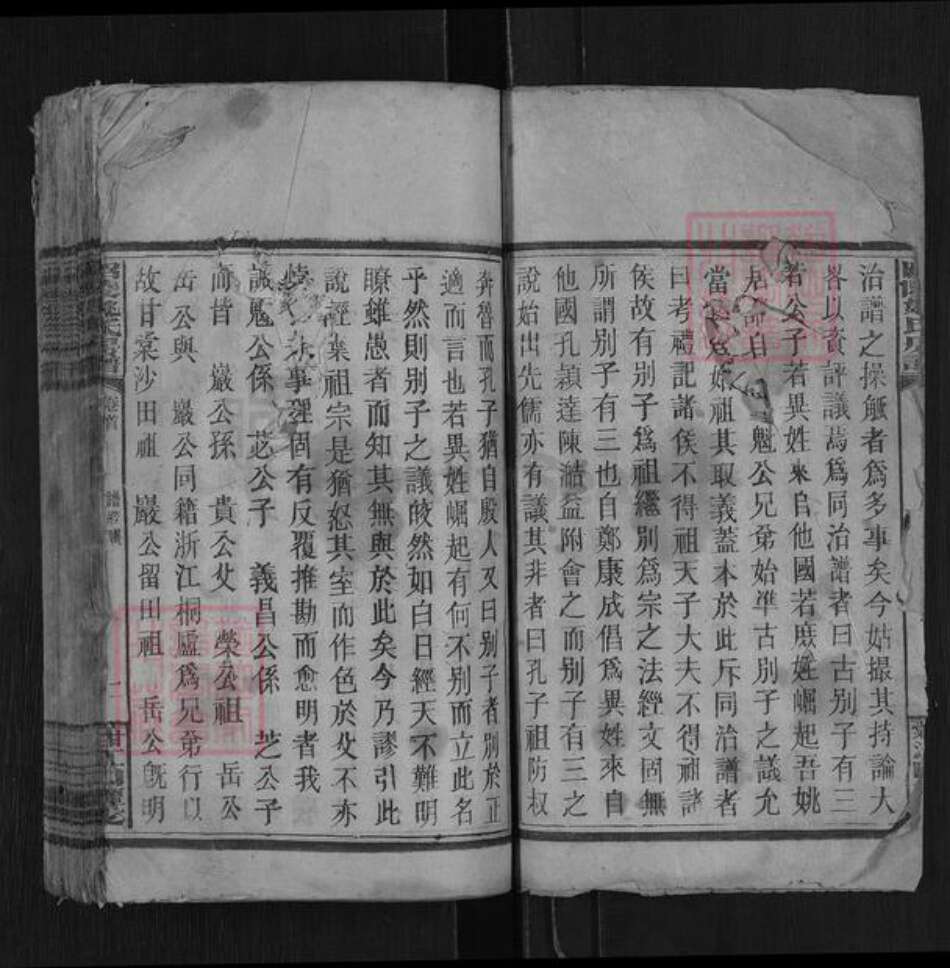 治譜之操觚者爲多事矣今姑撮其持論大
畧以資評議焉爲同治譜者曰古别子有三
若公子若異姓來自他國若庶姓崛起吾姚
自魁公兄弟始準古别子之議允
當爲始祖其取義蓋本於此斥同治譜者
曰考禮記諸侯不得祖天子大夫不得祖諸
侯故有别子爲祖繼别爲宗之法經文固無
所謂别子有三也自鄭康成倡爲異姓來自
他國孔頴達陳澔益附會之而别子有三之
說始出先儒亦有議其非者曰孔子祖防叔
奔魯而孔子猶自殷人又曰别子者别於正
適而言也若異姓崛起有何不别而立此名
乎然則别子之議皎然如白日經天不難明
瞭雖愚者而知其無與於此矣今乃謬引此
說誣業祖宗是猶怒其室而作色於父不亦
事理固有反覆推勘而愈明者我
誠魁公係 苾公子 義昌公係 芝公子
而昔 巖公孫 貴公父 榮公祖 岳公
岳公與 巖公同籍浙江桐廬爲兄弟行以
故甘棠沙田祖 巖公留田祖 岳公旣明